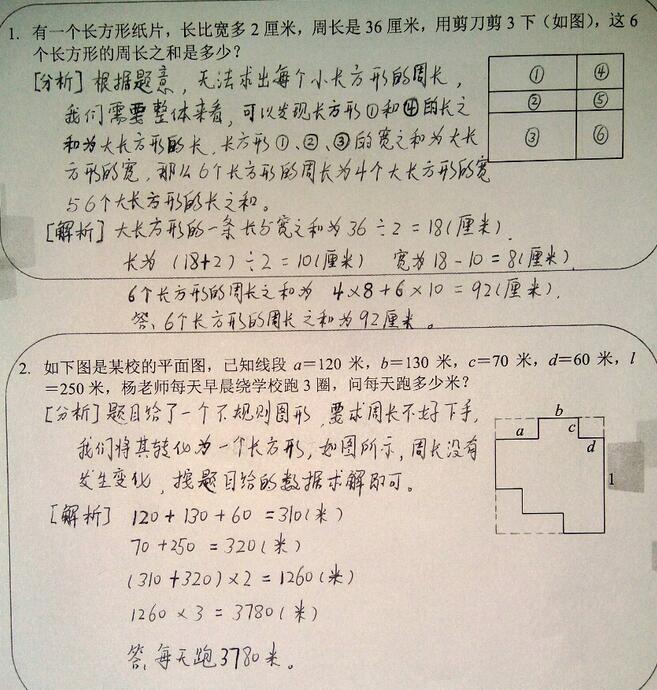 1. 有一个长方形纸片，长比宽多 2 厘米，周长是 36 厘米，用剪刀剪 3 下（如图），这 6
个长方形的周长之和是多少？
[分析] 根据题意，无法求出每个小长方形的周长，
我们需要整体来看，可以发现长方形①和④的长之
和为大长方形的长，长方形①、②、③的宽之和为大长
方形的宽，那么6个长方形的周长为4个大长方形的宽
与6个大长方形的长之和。
① ④
② ⑤
③ ⑥
[解析] 大长方形的一条长与宽之和为 36÷2=18(厘米).
长为 (18+2)÷2=10(厘米) 宽为18-10=8(厘米).
6个长方形的周长之和为 4×8+6×10=92(厘米).
答:6个长方形的周长之和为92厘米。
2. 如下图是某校的平面图，已知线段 a=120 米，b=130 米，c=70 米，d=60 米，l
=250 米，杨老师每天早晨绕学校跑 3 圈，问每天跑多少米？
[分析] 题目给了一个不规则图形，要求周长不好下手，
我们将其转化为一个长方形，如图所示，周长没有
发生变化，按题目给的数据求解即可。
b
a c
d
l
[解析] 120+130+60=310(米)
70+250=320(米)
(310+320)×2=1260(米)
1260×3=3780(米)
答:每天跑3780米。